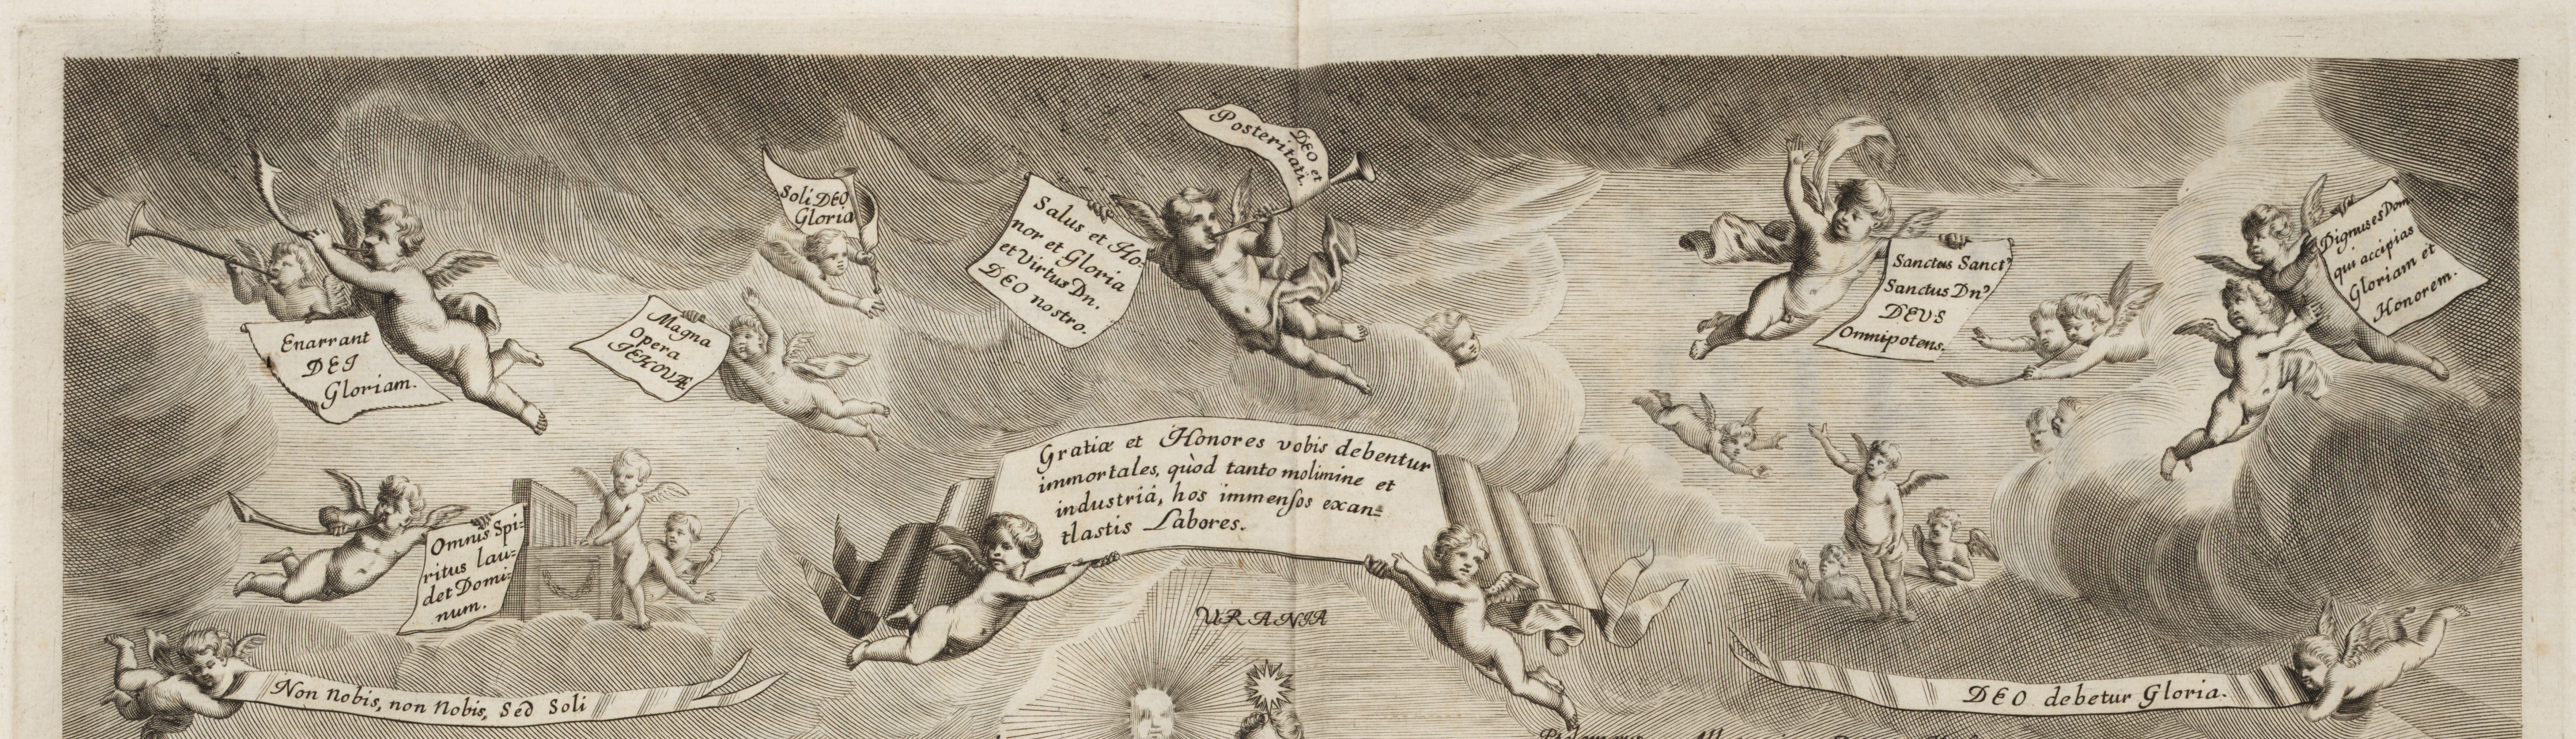 Enarrant
DEI
Gloriam.
Soli DEO
Gloria
Magna
Opera
JEHOVÆ
Salus et Ho-
nor et Gloria
et Virtus Dn.
DEO nostro.
DEO et
Posteritati.
Sanctus Sanct9
Sanctus Dn9
DEVS
Omnipotens.
Dignus es Dom.
qui accipias
Gloriam et
Honorem.
Gratiæ et Honores vobis debentur
immortales, quòd tanto molimine et
industriâ, hos immensos exan=
tlastis Labores.
Omnis Spi=
ritus lau=
det Domi=
num.
URANIA
Non nobis, non Nobis, Sed Soli
DEO debetur Gloria.